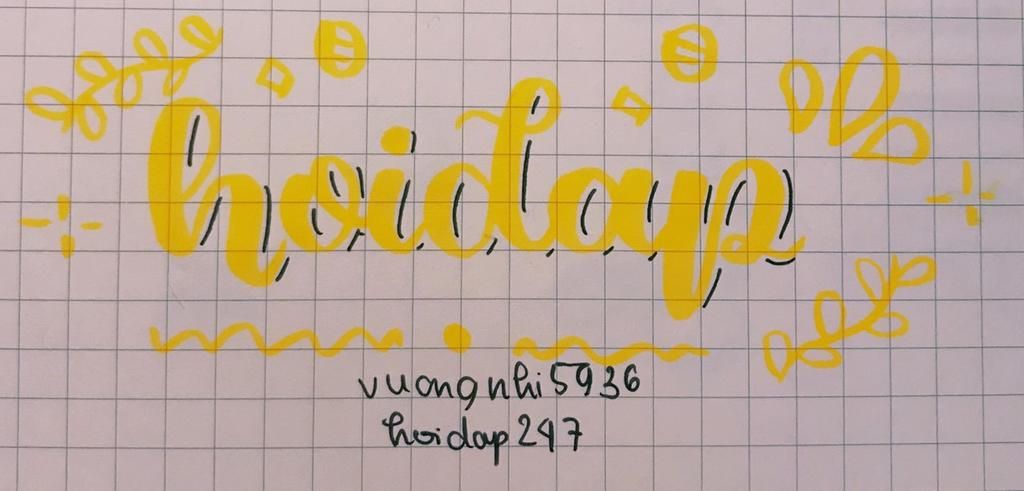 hoidap
vuongnhi5936
hoidap247